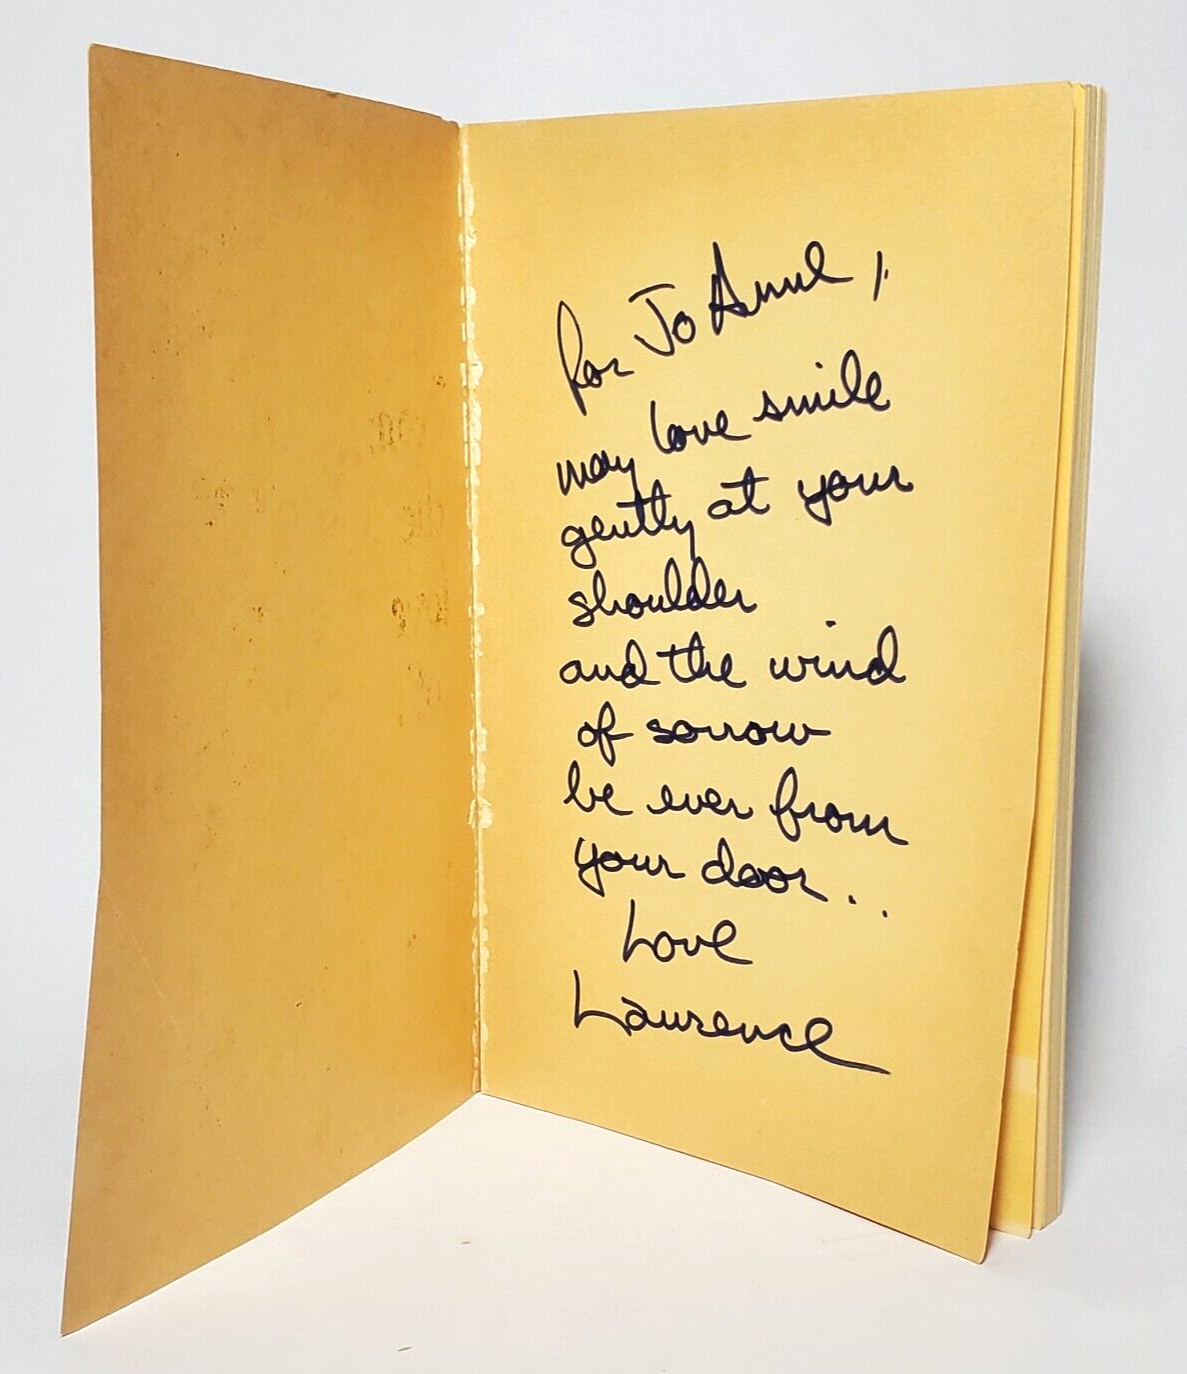 For Jo Anne,
may love smile
gently at your
shoulder
and the wind
of sorrow
be ever from
your door...
Love
Laurence